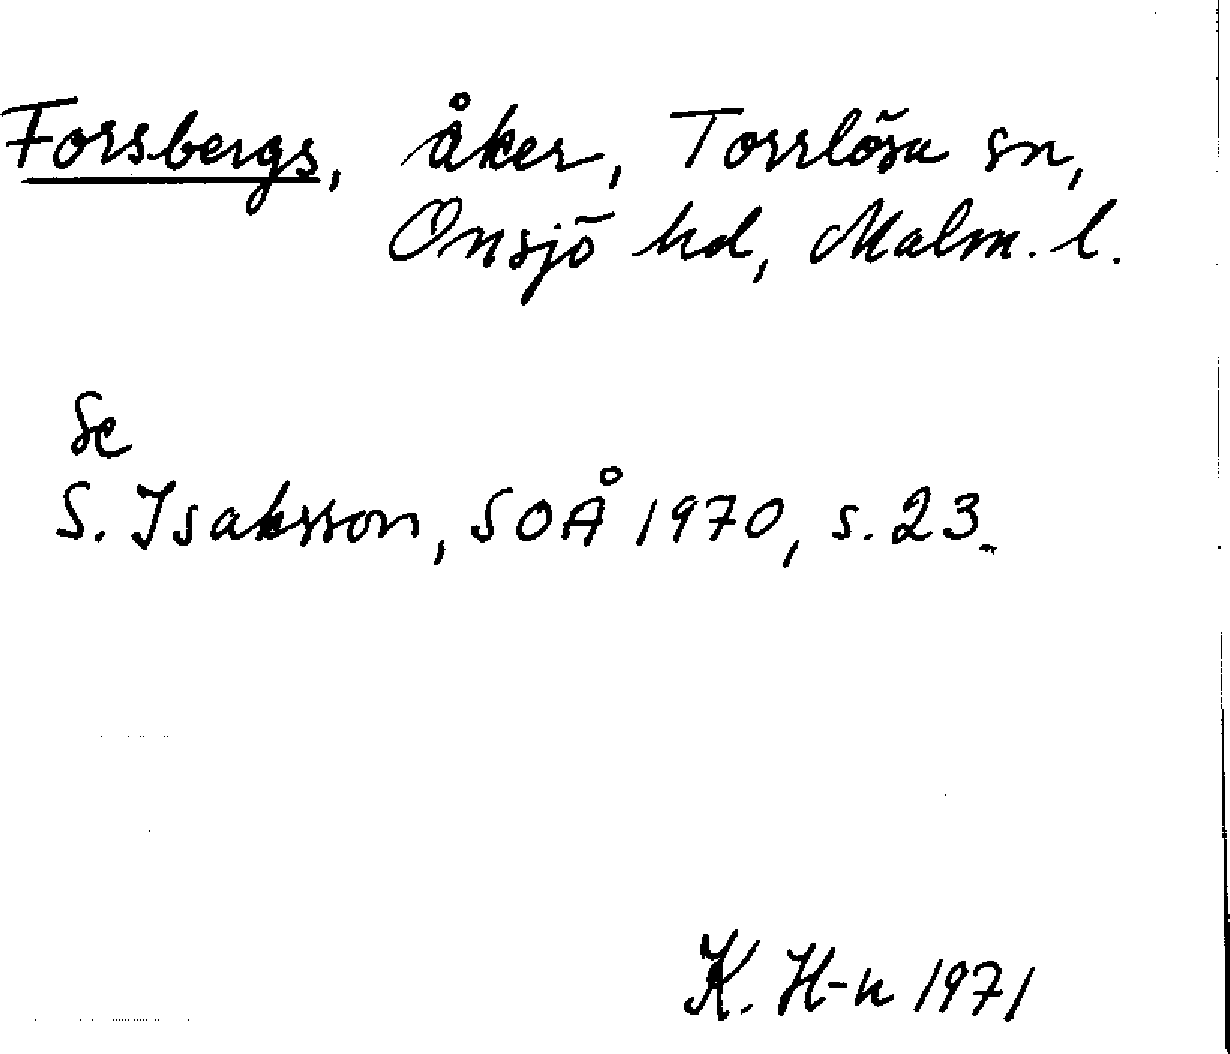 Forsbergs, åker, Torrlösa sn,
Onsjö hd, Malm. l.
Se
S. Isaksson, SOÅ 1970, s. 23.
K. H-n 1971